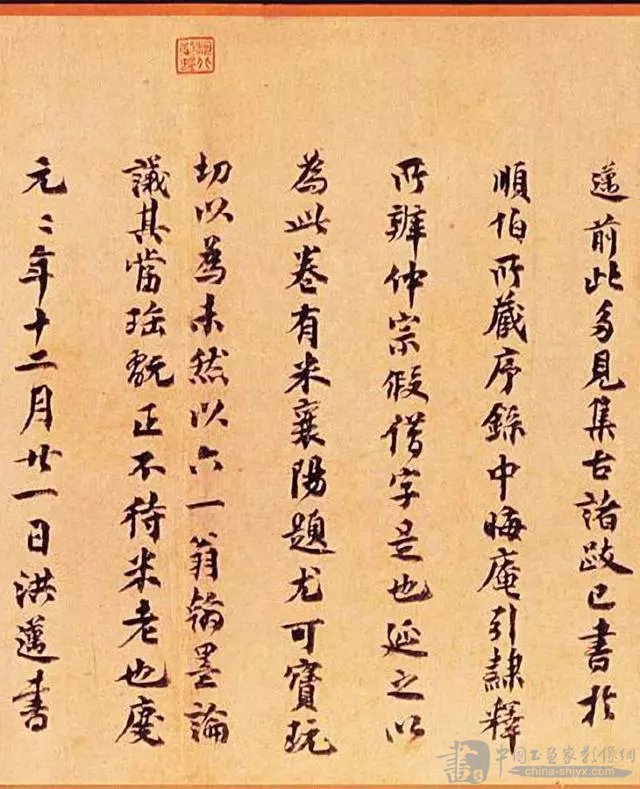 邁前此多見集古諸跋已書於
順伯所藏序錄中晦庵引隸釋
所辨仲宗假借字是也延之以
為此卷有米襄陽題尤可寶玩
切以為未然以六一翁翰墨論
議其當瑤玩正不待米老也慶
元二年十二月廿一日洪邁書
中国书画家影像網
china-shjyx.com